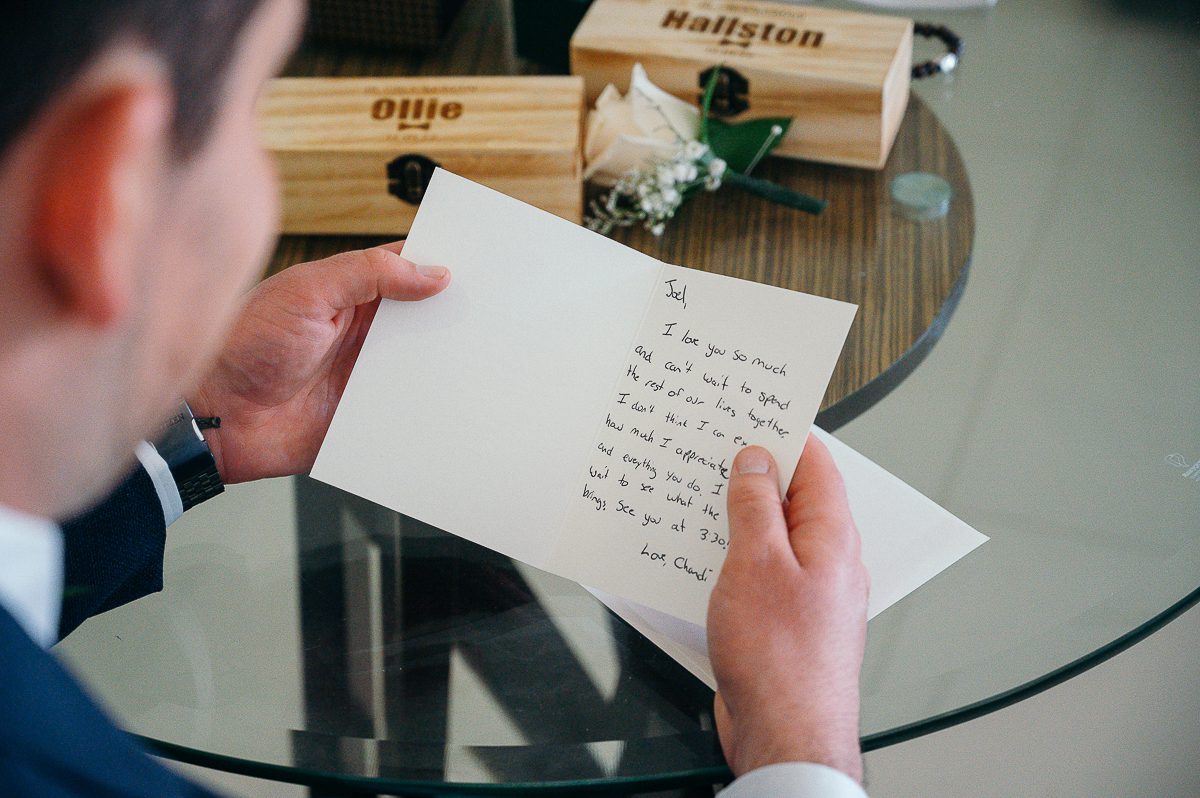 Hallston
Ollie
Joel,
I love you so much
and can't wait to spend
the rest of our lives together.
I don't think I can
how much I appreciate
and everything you do. I
wait to see what the
brings. See you at 3:30!
Love, Chandi